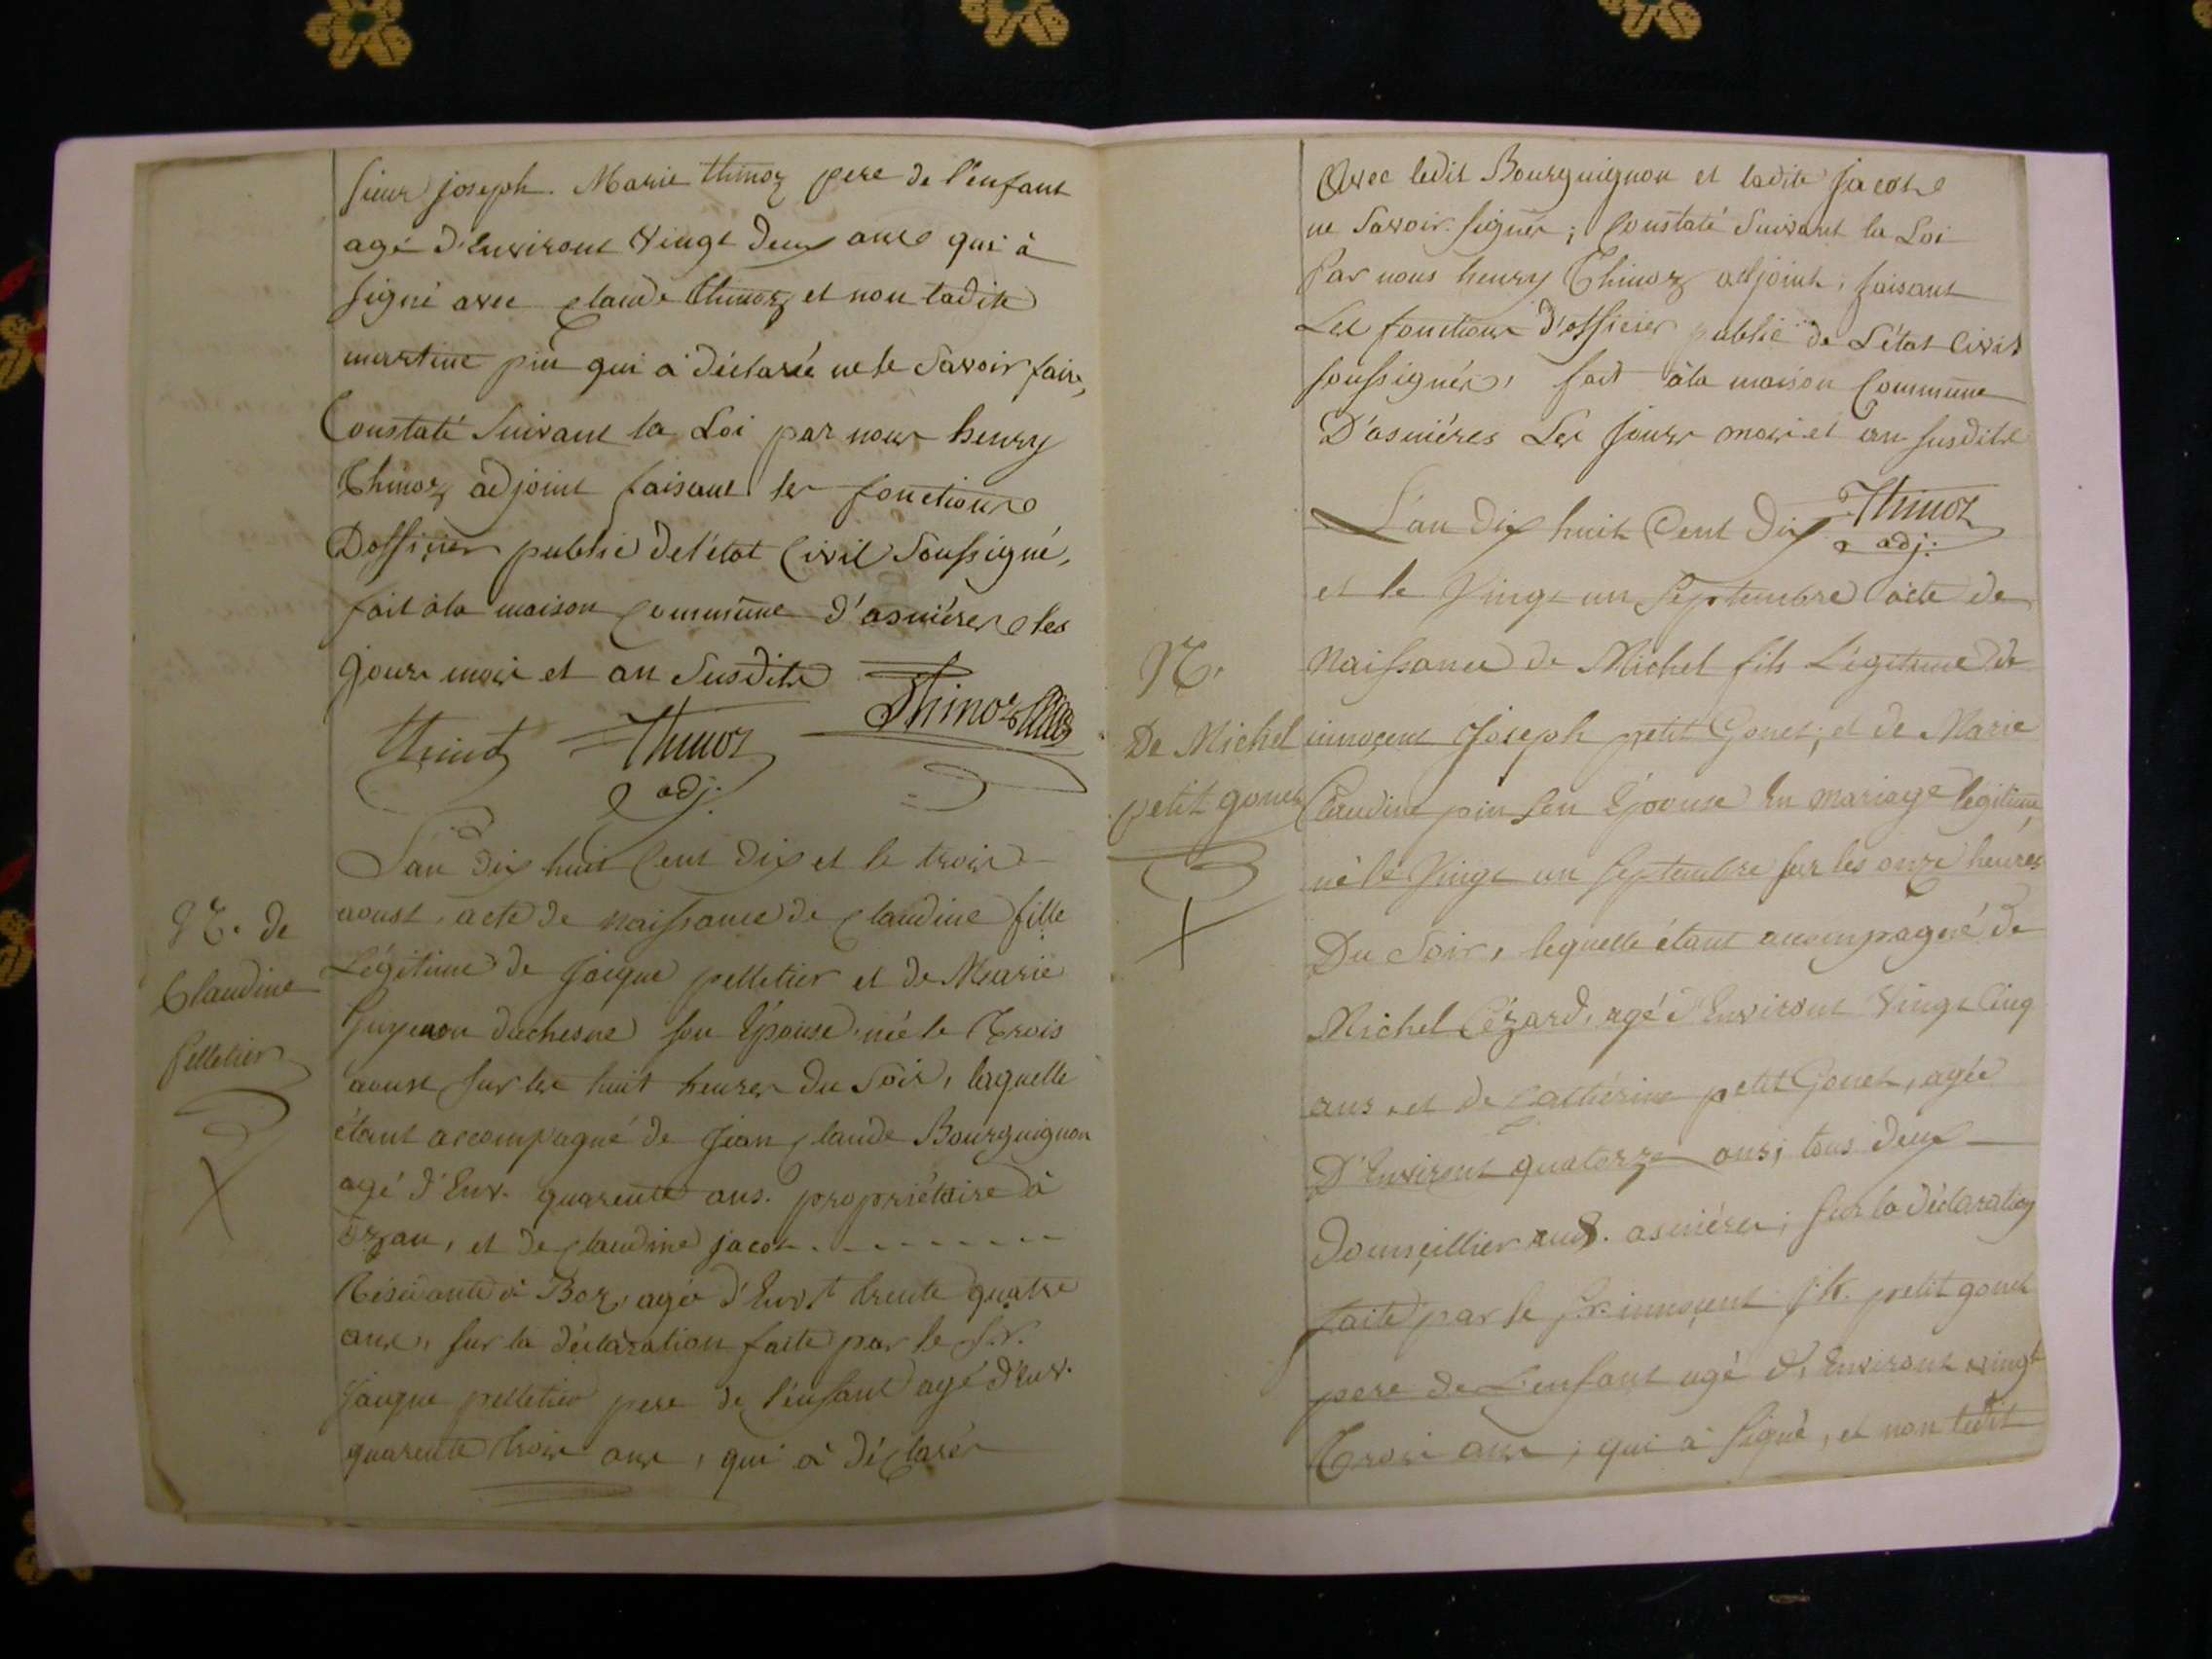 sieur joseph. Marie thinoz pere de l'enfant
agé d'Environt Vingt Deux ans qui à
signé avec Claude thinoz et non ladite
martine pin qui à déclaréé ne le Savoir faire,
Constaté Suivant la Loi par nous henry
Thinoz adjoint faisant les fonctions
Dofficier public de l'état Civil Soussigné,
fait à la maison Commune d'asniéres les
jours mois et an Susdits
thinoz Thinoz Thinoz
adj:
N. de
Claudine
Pelletier
L'an dix huit Cent Dix et le trois
aoust, acte de naissance de Claudine fille
Légitime de Jaique pelletier et de Marie
duchesne son Épouse, née le Trois
aoust sur les huit heures Du Soir, laquelle
étant accompagné de Jean Claude Bourguignon
agé d'Env. quarente ans. propriétaire à
Ozan, et de Claudine jacot
Résidante à Boz, agée d'Env.t trente quatre
ans, sur la déclaration faite par le S.r.
Jaique pelletier pere de l'enfant agé d'Env.
quarente trois ans, qui à déclarér
Avec ledit Bourguignon et ladite Jacot
ne Savoir signér; Constaté Suivant la Loi
Par nous henry Thinoz adjoint, faisant
Les fonctions d'officier public de L'état Civil
soussignér, fait à la maison Commune
D'asniéres Les Jours mois et an susdits
Thinoz
adj:
N.
De Michel
petit gonet
L'an Dix huit Cent Dix
et le Vingt un Septembre acte de
Naissance de Michel fils Légitime de
innoçent Joseph petit Gonet, et de Marie
Claudine pin son Épouse En mariage légitime,
né le Vingt un Septembre sur les onze heures
Du Soir, lequelle étant accompagné de
Michel Cézard, agé d'Environt Vingt Cinq
ans, et de Cathérine petit Gonet, agée
D'Environt quatorze ans; tous deux
Domiçillier asniéres; sur la déclaration
faite par le S.r. innoçent jh. petit gonet
pere de L'enfant agé d'Environt vingt
Trois ans; qui à signé, et non ledit